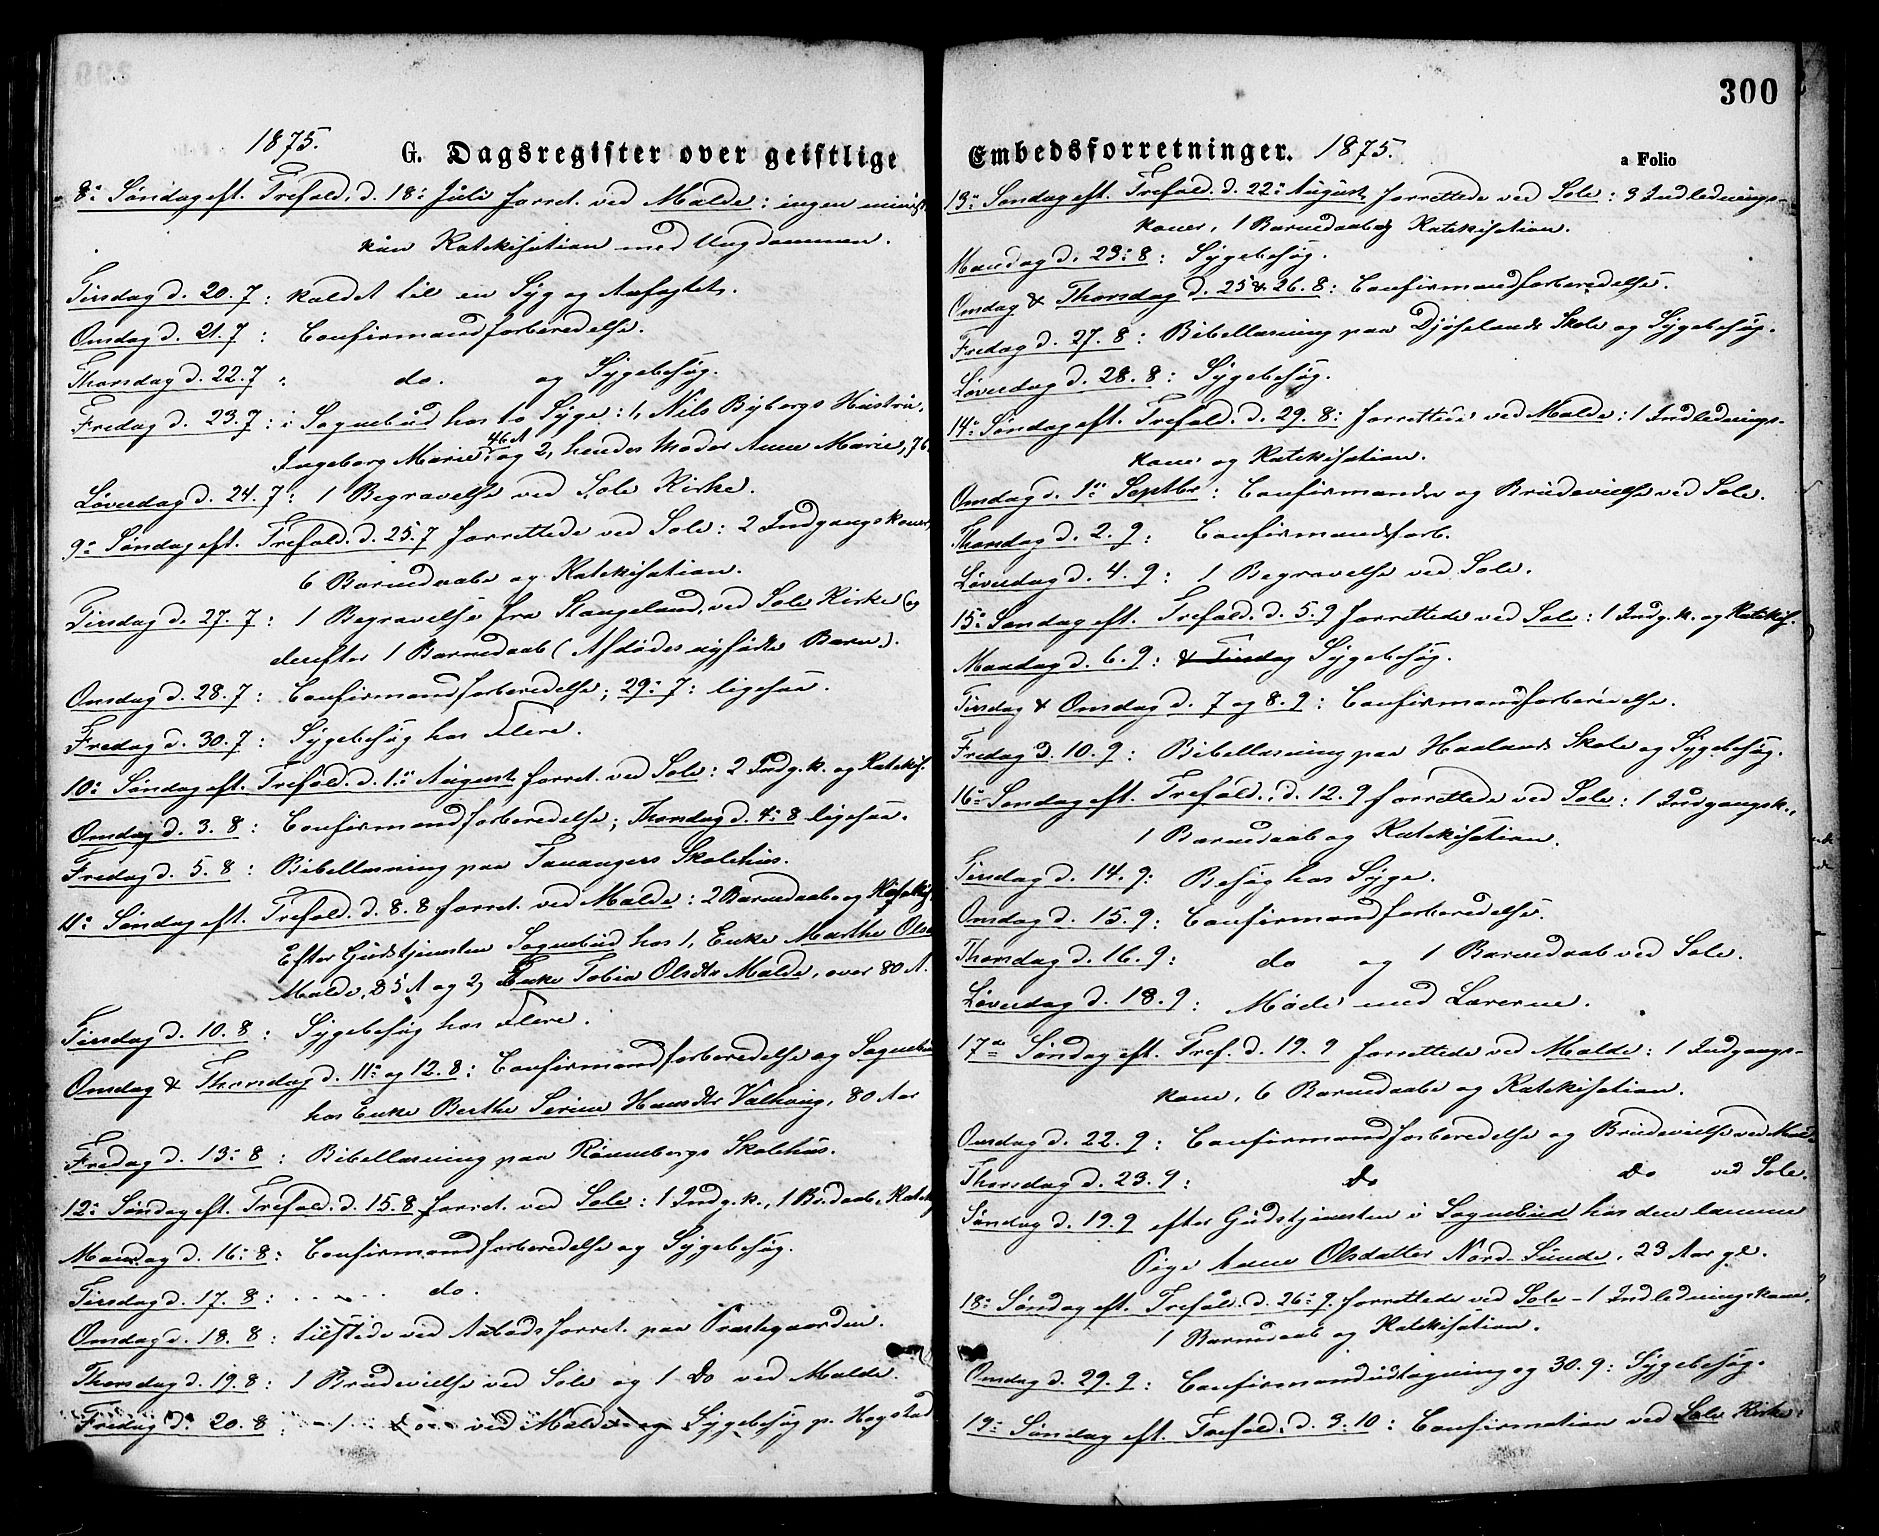 1875.
G. Dagsregister over geistlige
8: Søndag eft. Trefold. d. 18: Juli forret. ved Malde: ingen minist.
kun Katekisation med Ungdommen.
Tirsdag d. 20. 7: kaldet til en Syg og Anfægtet.
Onsdag d. 21. 7: Confirmandforberedelse.
Thorsdag d. 22. 7: do. og Sygebesøg.
Fredag d. 23. 7: i Sognebud hos to Syge: 1, Nils Byebergs Hustru,
Ingeborg Marie, 46 A og 2, hendes Moder Anne Marie, 76
Løverdag d. 24. 7: 1 Begravelse ved Sole Kirke.
9: Søndag eft. Trefold. d. 25. 7 forrettede ved Sole: 2 Indgangskoner,
6 Barnedaabe og Katekisation.
Tirsdag d. 27. 7: 1 Begravelse fra Stangeland, ved Sole Kirke (og
derefter 1 Barnedaab (Afdødes nyfødte Barn).
Onsdag d. 28. 7: Confirmandforberedelse; 29: 7: ligesaa.
Fredag d. 30. 7: Sygebesøg hos Flere.
10: Søndag eft. Trefold. d. 1: August forret. ved Sole: 2 Indg.k. og Katekis.
Onsdag d. 3. 8: Confirmandforberedelse; Thorsdag d. 4: 8 ligesaa.
Fredag d. 5. 8: Bibellæsning paa Tanangers Skolehus.
11: Søndag eft. Trefold. d. 8. 8 forret. ved Malde: 2 Barnedaabe og
Efter Gudstjenesten Sognebud hos 1, Enke Marthe Ols
Malde, 85 A og 2, Enke Tobia Olsdtr Malde, over 80 A.
Tirsdag d. 10. 8: Sygebesøg hos Flere.
Onsdag & Thorsdag d. 11: og 12. 8: Confirmandforberedelse og Sognebud
hos Enke Berthe Serine Hansdtr 80 Aar
Fredag d. 13: 8: Bibellæsning paa Rønnebergs Skolehus.
12: Søndag eft. Trefold. d. 15. 8 forret. ved Sole: 1 Indg.k., 1 B.daab, Katek
Mandag d. 16: 8: Confirmandforberedelse og Sygebesøg.
Tirsdag d. 17. 8: do.
Onsdag d. 18. 8: tilstede ved Aabodsforret. paa Præstegaarden.
Thorsdag d. 19. 8: 1 Brudevielse ved Sole og 1 Do ved Malde.
Fredag d. 20. 8: - 1 - do - ved Malde og Sygebesøg p. Hogstad
300
Embedsforretninger. 1875.
a Folio
13: Søndag eft. Trefold. d. 22: August forrettede ved Sole: 3 Indlednings-
koner, 1 Barnedaab og Katekisation.
Mandag d. 23: 8: Sygebesøg.
Onsdag & Thorsdag d. 25 & 26. 8: Confirmandforberedelse.
Fredag d. 27. 8: Bibellæsning paa Djøselands Skole og Sygebesøg.
Løverdag d. 28. 8: Sygebesøg.
14: Søndag eft. Trefold. d. 29. 8: forrettede ved Malde: 1 Indlednings-
kone og Katekisation.
Onsdag d. 1: Septbr: Confirmander og Brudevielse ved Sole.
Thorsdag d. 2. 9: Confirmandforb.
Løverdag d. 4. 9: 1 Begravelse ved Sole.
15: Søndag eft. Trefold. d. 5. 9 forrettede ved Sole: 1 Indg.k. og Katekis.
Mandag d. 6. 9: & Tirsdag Sygebesøg.
Tirsdag & Onsdag d. 7 og 8. 9: Confirmandforberedelse.
Fredag d. 10. 9: Bibellæsning paa Haalands Skole og Sygebesøg.
16: Søndag eft. Trefold. d. 12. 9 forrettede ved Sole: 1 Indgangsk.,
1 Barnedaab og Katekisation.
Tirsdag d. 14. 9: Besøg hos Syge.
Onsdag d. 15. 9: Confirmandforberedelse.
Thorsdag d. 16. 9: do og 1 Barnedaab ved Sole.
Løverdag d. 18. 9: Møde med Lærerne.
17de Søndag eft. Tref. d. 19. 9 forrettede ved Malde: 1 Indgangs-
kone, 6 Barnedaabe og Katekisation.
Onsdag d. 22. 9: Confirmandforberedelse og Brudevielse ved Malde
Thorsdag d. 23. 9: Do Do ved Sole.
Søndag d. 19. 9 efter Gudstjenesten i Sognebud hos den lamme
Pige Anne Olsdatter Nord-Sunde, 23 Aar gl.
18: Søndag eft. Trefold. d. 26: 9. forrettede ved Sole - 1 Indledningskone,
1 Barnedaab og Katekisation.
Onsdag d. 29. 9: Confirmandudtagning og 30. 9: Sygebesøg.
19: Søndag eft. Trefold. d. 3. 10: Confirmation ved Sole Kirke.